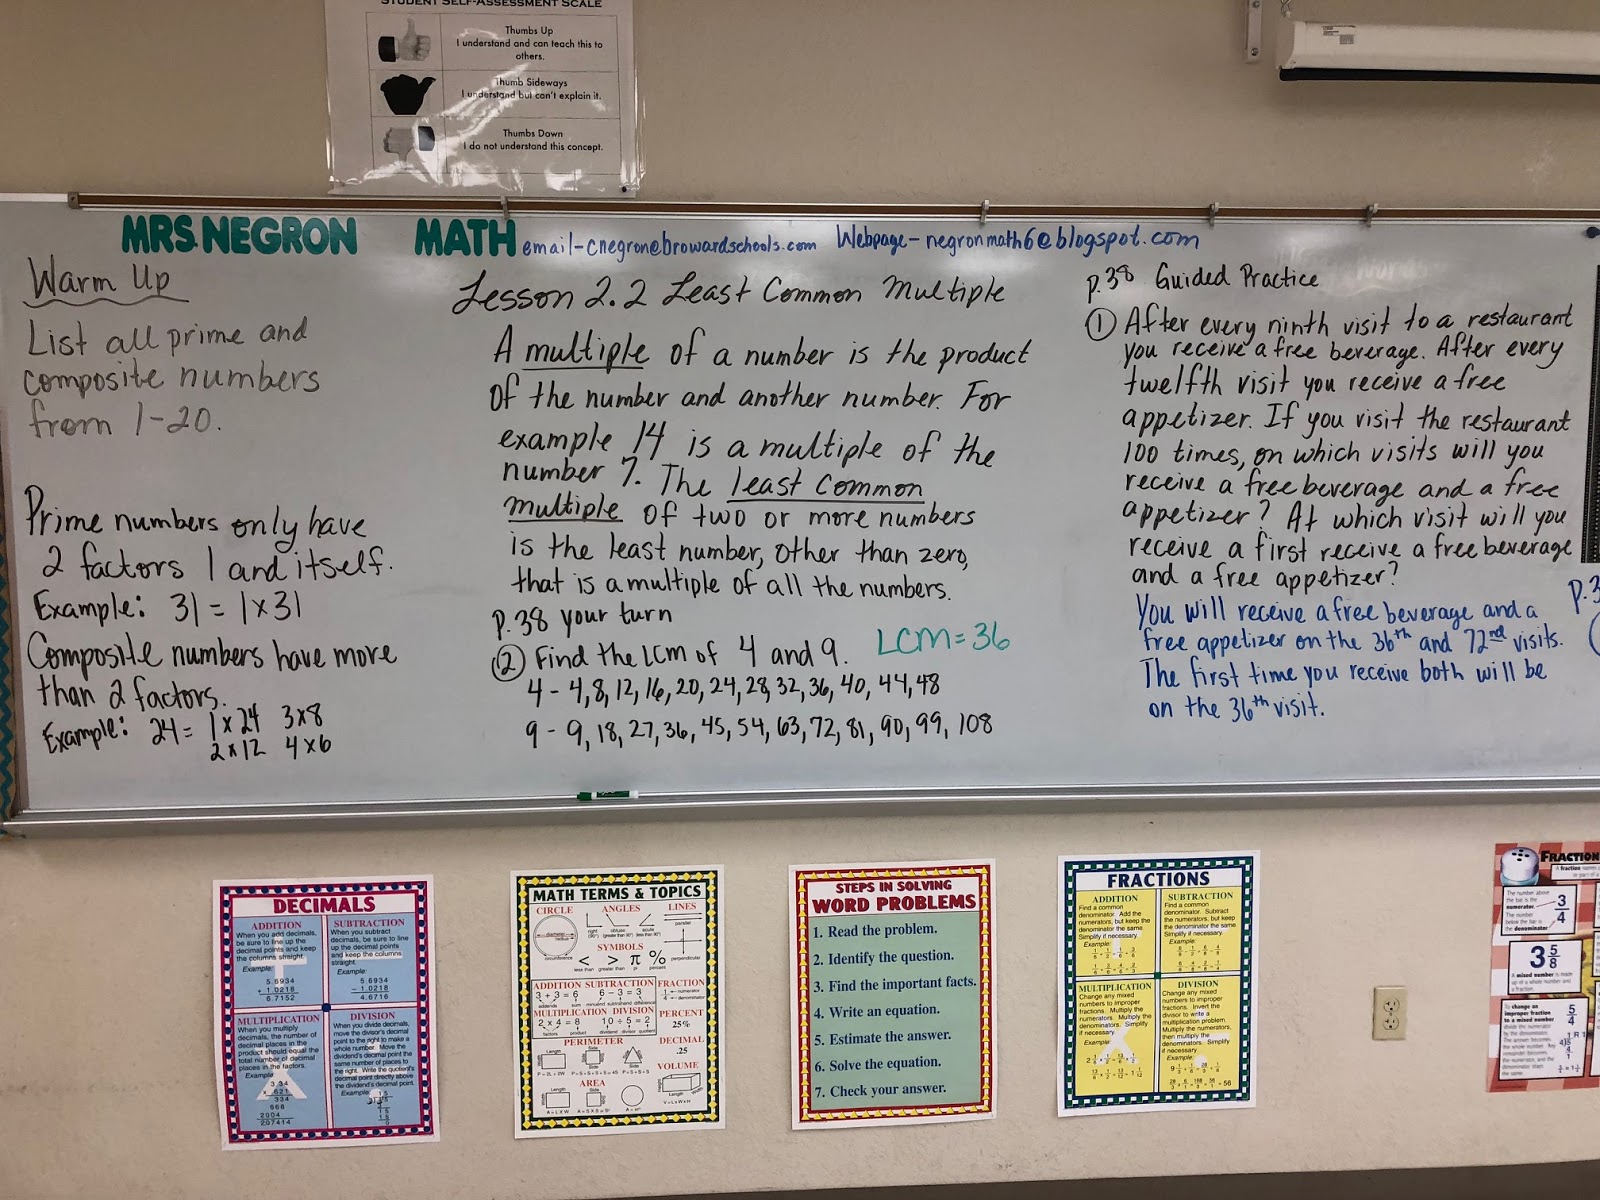 STUDENT SELF-ASSESSMENT SCALE
Thumbs Up
I understand and can teach this to
others.
Thumb Sideways
I understand but can't explain it.
Thumbs Down
I do not understand this concept.
MRS. NEGRON MATH
email-cnegron@browardschools.com Webpage-negronmath6@blogspot.com
Warm Up
List all prime and
composite numbers
from 1-20.
Prime numbers only have
2 factors 1 and itself.
Example: 31 = 1x31
Composite numbers have more
than 2 factors.
Example: 24 = 1x24 3x8
2x12 4x6
Lesson 2.2 Least Common Multiple
A multiple of a number is the product
of the number and another number. For
example 14 is a multiple of the
number 7. The least common
multiple of two or more numbers
is the least number, other than zero,
that is a multiple of all the numbers.
p.38 your turn
2 Find the LCM of 4 and 9. LCM=36
4 - 4,8,12,16,20,24,28,32,36,40,44,48
9 - 9,18,27,36,45,54,63,72,81,90,99,108
p.38 Guided Practice
1 After every ninth visit to a restaurant
you receive a free beverage. After every
twelfth visit you receive a free
appetizer. If you visit the restaurant
100 times, on which visits will you
receive a free beverage and a free
appetizer? At which visit will you
receive a first receive a free beverage
and a free appetizer?
You will receive a free beverage and a
free appetizer on the 36th and 72nd visits.
The first time you receive both will be
on the 36th visit.
DECIMALS
ADDITION
When you add decimals,
be sure to line up the
decimal points and keep
the columns straight.
Example:
5.6934
+ 1.0218
6.7152
SUBTRACTION
When you subtract
decimals, be sure to line
up the decimal points
and keep the columns
straight.
Example:
5.6934
- 1.0218
4.6716
MULTIPLICATION
When you multiply
decimals, the number of
decimal places in the
product should equal the
total number of decimal
places in the factors.
Example:
DIVISION
When you divide decimals,
move the divisor's decimal
point to the right to make a
whole number. Move the
dividend's decimal point the
same number of places to
the right. Write the quotient's
decimal point directly above
the dividend's decimal point.
MATH TERMS & TOPICS
CIRCLE ANGLES LINES
SYMBOLS
< > π %
less than greater than pi percent
ADDITION SUBTRACTION FRACTION
3 + 3 = 6 6 - 3 = 3
MULTIPLICATION DIVISION PERCENT
2 x 4 = 8 10 ÷ 5 = 2 25%
PERIMETER DECIMAL
.25
VOLUME
AREA
STEPS IN SOLVING
WORD PROBLEMS
1. Read the problem.
2. Identify the question.
3. Find the important facts.
4. Write an equation.
5. Estimate the answer.
6. Solve the equation.
7. Check your answer.
FRACTIONS
ADDITION
Find a common
denominator. Add the
numerators, but keep the
denominator the same.
Simplify if necessary.
Example:
SUBTRACTION
Find a common
denominator. Subtract
the numerators, but keep
the denominator the same.
Simplify if necessary.
Example:
MULTIPLICATION
Change any mixed
numbers to improper
fractions. Multiply the
numerators. Multiply the
denominators. Simplify
if necessary.
Example:
DIVISION
Change any mixed
numbers to improper
fractions. Invert the
divisor to write a
multiplication problem.
Multiply the numerators,
then multiply the
denominators. Simplify
if necessary
Example:
FRACTION
3/4
3 5/8
5/4